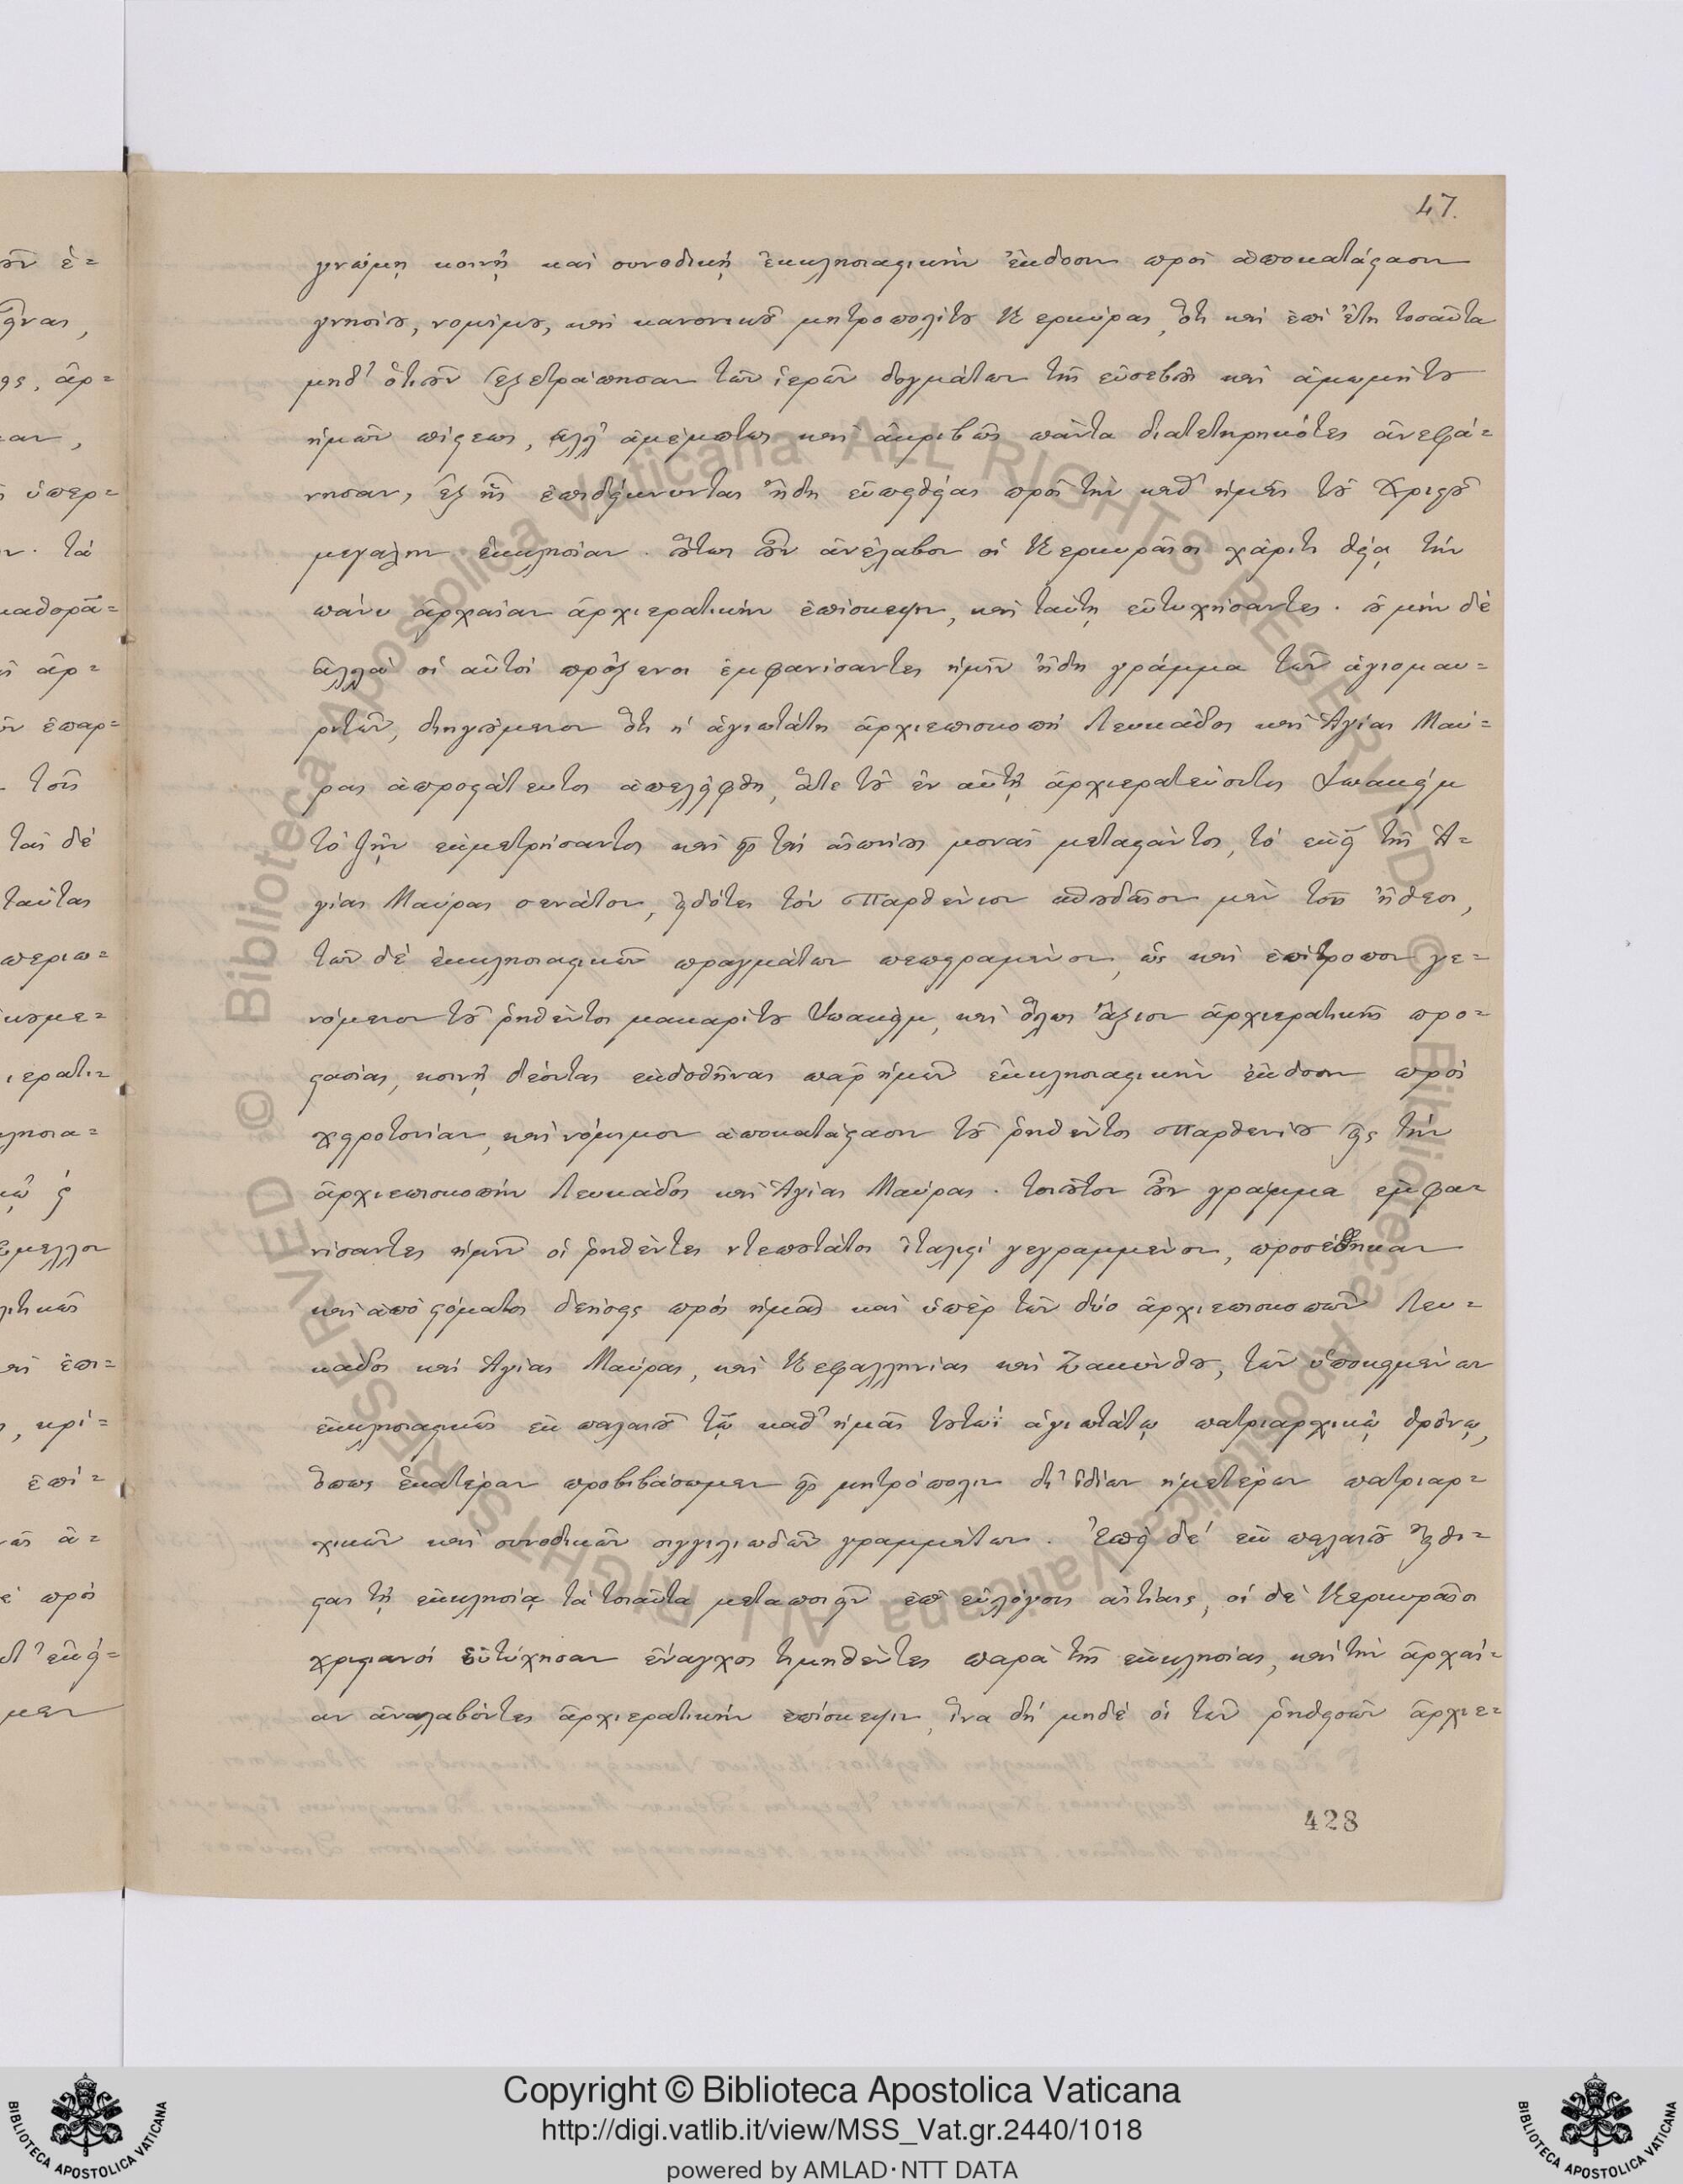 47.
γνώμῃ κοινῇ καὶ συνοδικῇ ἐκκλησιαστικὴν ἔκδοσιν πρὸς ἀποκατάστασιν
γνησίου, νομίμου, καὶ κανονικοῦ μητροπολίτου Κερκύρας, ὅτι καὶ ἐπὶ ἔτη τοσαῦτα
μηδ' ὁτιοῦν ἐξετράπησαν τῶν ἱερῶν δογμάτων τῆς εὐσεβοῦς καὶ ἀμωμήτου
ἡμῶν πίστεως, ἀλλ' ἀμέμπτως καὶ ἀκριβῶς πάντα διατετηρηκότες ἀνεφά=
νησαν, ἐξ ἧς ἐπιδείκνυνται ἤδη εὐπειθείας πρὸς τὴν καθ' ἡμᾶς τοῦ Χριστοῦ
μεγάλην ἐκκλησίαν. Οὕτως οὖν ἀνέλαβον οἱ Κερκυραῖοι χάριτι θείᾳ τὴν
πάνυ ἀρχαίαν ἀρχιερατικὴν ἐπίσκεψιν, καὶ ταύτῃ εὐτυχήσαντες. οὐ μὴν δὲ
ἀλλὰ οἱ αὐτοὶ πρόξενοι ἐμφανίσαντες ἡμῖν ἤδη γράμμα τῶν ἁγιομαυ=
ριτῶν, διηγούμενον ὅτι ἡ ἁγιωτάτη ἀρχιεπισκοπὴ Λευκάδος καὶ Ἁγίας Μαύ=
ρας ἀπροστάτευτος ἀπελείφθη, ἅτε τοῦ ἐν αὐτῇ ἀρχιερατεύοντος Ἰωακεὶμ
τὸ ζῆν ἐκμετρήσαντος καὶ εἰς τὰς αἰωνίους μονὰς μεταστάντος, τὸ ἐκεῖ τῆς Ἁ=
γίας Μαύρας σενάτον, εἰδότες τὸν Παρθένιον σπουδαῖον μὲν τοῖς ἤθεσι,
τῶν δὲ ἐκκλησιαστικῶν πραγμάτων πεπειραμένον, ὡς καὶ ἐπίτροπον γε=
νόμενον τοῦ ῥηθέντος μακαρίτου Ἰωακείμ, καὶ ὅλως ἄξιον ἀρχιερατικῆς προ=
στασίας, κοινῇ δέονται ἐκδοθῆναι παρ' ἡμῶν ἐκκλησιαστικὴν ἔκδοσιν πρὸς
χειροτονίαν, καὶ νόμιμον ἀποκατάστασιν τοῦ ῥηθέντος Παρθενίου εἰς τὴν
ἀρχιεπισκοπὴν Λευκάδος καὶ Ἁγίας Μαύρας. τοιοῦτον οὖν γράμμα ἐμφα=
νίσαντες ἡμῖν οἱ ῥηθέντες ντεπουτάτοι ἰταλιστὶ γεγραμμένον, προσέθηκαν
καὶ ἀπὸ στόματος δεήσεις πρὸς ἡμᾶς καὶ ὑπὲρ τῶν δύο ἀρχιεπισκοπῶν Λευ=
κάδος καὶ Ἁγίας Μαύρας, καὶ Κεφαλληνίας καὶ Ζακύνθου, τῶν ὑποκειμένων
ἐκκλησιαστικῶς ἐκ παλαιοῦ τῷ καθ' ἡμᾶς τουτωὶ ἁγιωτάτῳ πατριαρχικῷ θρόνῳ,
ὅπως ἑκατέραν προβιβάσωμεν εἰς μητρόπολιν δι' ἰδίων ἡμετέρων πατριαρ=
χικῶν καὶ συνοδικῶν σιγγιλιωδῶν γραμμάτων. Ἐπεὶ δὲ ἐκ παλαιοῦ εἴθι=
σται τῇ ἐκκλησίᾳ τὰ τοιαῦτα μεταποιεῖν ἐπ' εὐλόγοις αἰτίαις, οἱ δὲ Κερκυραῖοι
χριστιανοὶ εὐτύχησαν ἔναγχος τιμηθέντες παρὰ τῆς ἐκκλησίας, καὶ τὴν ἀρχαί=
αν ἀναλαβόντες ἀρχιερατικὴν ἐπίσκεψιν, ἵνα δὴ μηδὲ οἱ τῶν ῥηθεισῶν ἀρχιε=
428
Copyright © Biblioteca Apostolica Vaticana
http://digi.vatlib.it/view/MSS_Vat.gr.2440/1018
powered by AMLAD·NTT DATA